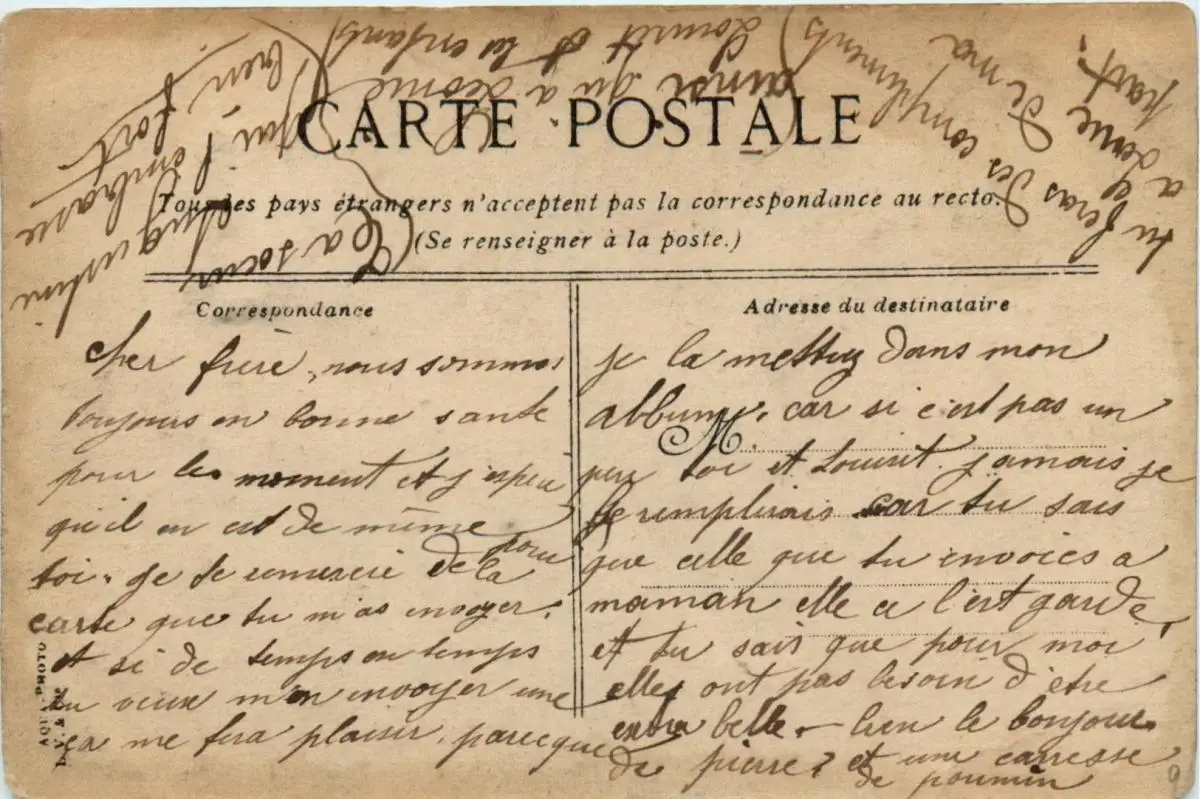 CARTE POSTALE
Tous les pays étrangers n'acceptent pas la correspondance au recto.
(Se renseigner à la poste.)
Correspondance
cher frère, nous sommes
toujours en bonne sante
pour les moment et j'espère
qu'il en est de même pour
toi. je te remercie de la
carte que tu m'as envoyer.
et si de temps en temps
tu veux m'en envoyer une
ça me fera plaisir. parceque
Adresse du destinataire
M.
je la mettrez dans mon
album, car si c'est pas un
peu toi et jamais je
le remplirais car tu sais
que celle que tu envoies a
maman elle ce l'est garde,
et tu sais que pour moi
elles ont pas besoin d'être
extra belle. bien le bonjour
de pierre et une carresse
de
tu feras des compliments
a de ma part.
ainsi qu'a et les enfants
Ta soeur qui t'embrasse
bien fort
PHOTO